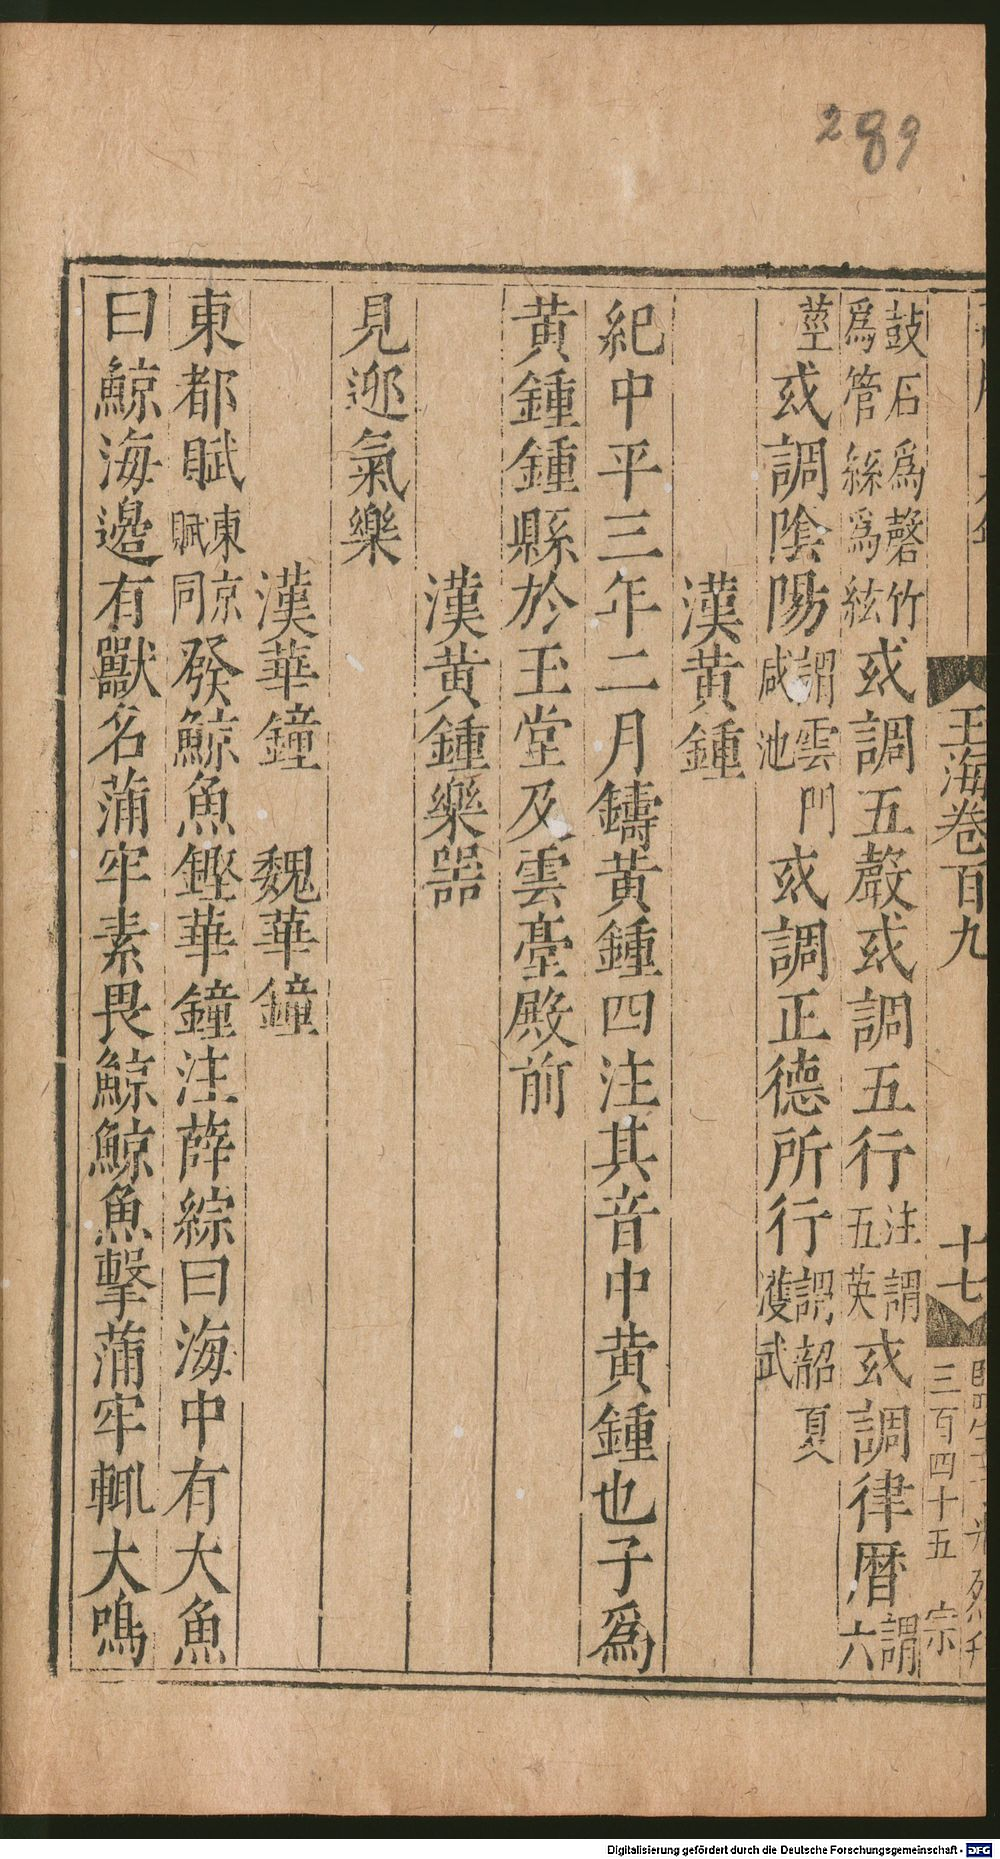 289
玉海卷百九
十七
三百四十五 宗
鼓石爲磬竹
爲管絲爲絃
或調五聲或調五行
注謂
五英
或調律曆
謂
六
莖
或調陰陽
謂雲門
咸池
或調正德所行
謂韶夏
濩武
漢黄鍾
紀中平三年二月鑄黄鍾四注其音中黄鍾也子爲
黄鍾鍾縣於玉堂及雲臺殿前
漢黄鍾樂器
見迎氣樂
漢華鐘 魏華鐘
東都賦
東京
賦同
發鯨魚鏗華鐘注薛綜曰海中有大魚
曰鯨海邊有獸名蒲牢素畏鯨鯨魚擊蒲牢輒大鳴
Digitalisierung gefördert durch die Deutsche Forschungsgemeinschaft - DFG